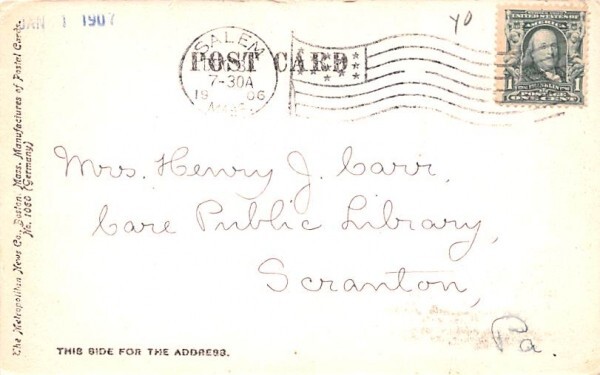 JAN 1 1907
40
SALEM
7-30A
19 06
POST CARD
UNITED STATES OF
AMERICA
1 1
POSTAGE
ONE CENT
Mrs. Henry J. Carr,
Care Public Library,
Scranton,
Pa.
The Metropolitan News Co., Boston, Mass. Manufactures of Postal Cards.
No. 1050 (Germany)
THIS SIDE FOR THE ADDRESS.